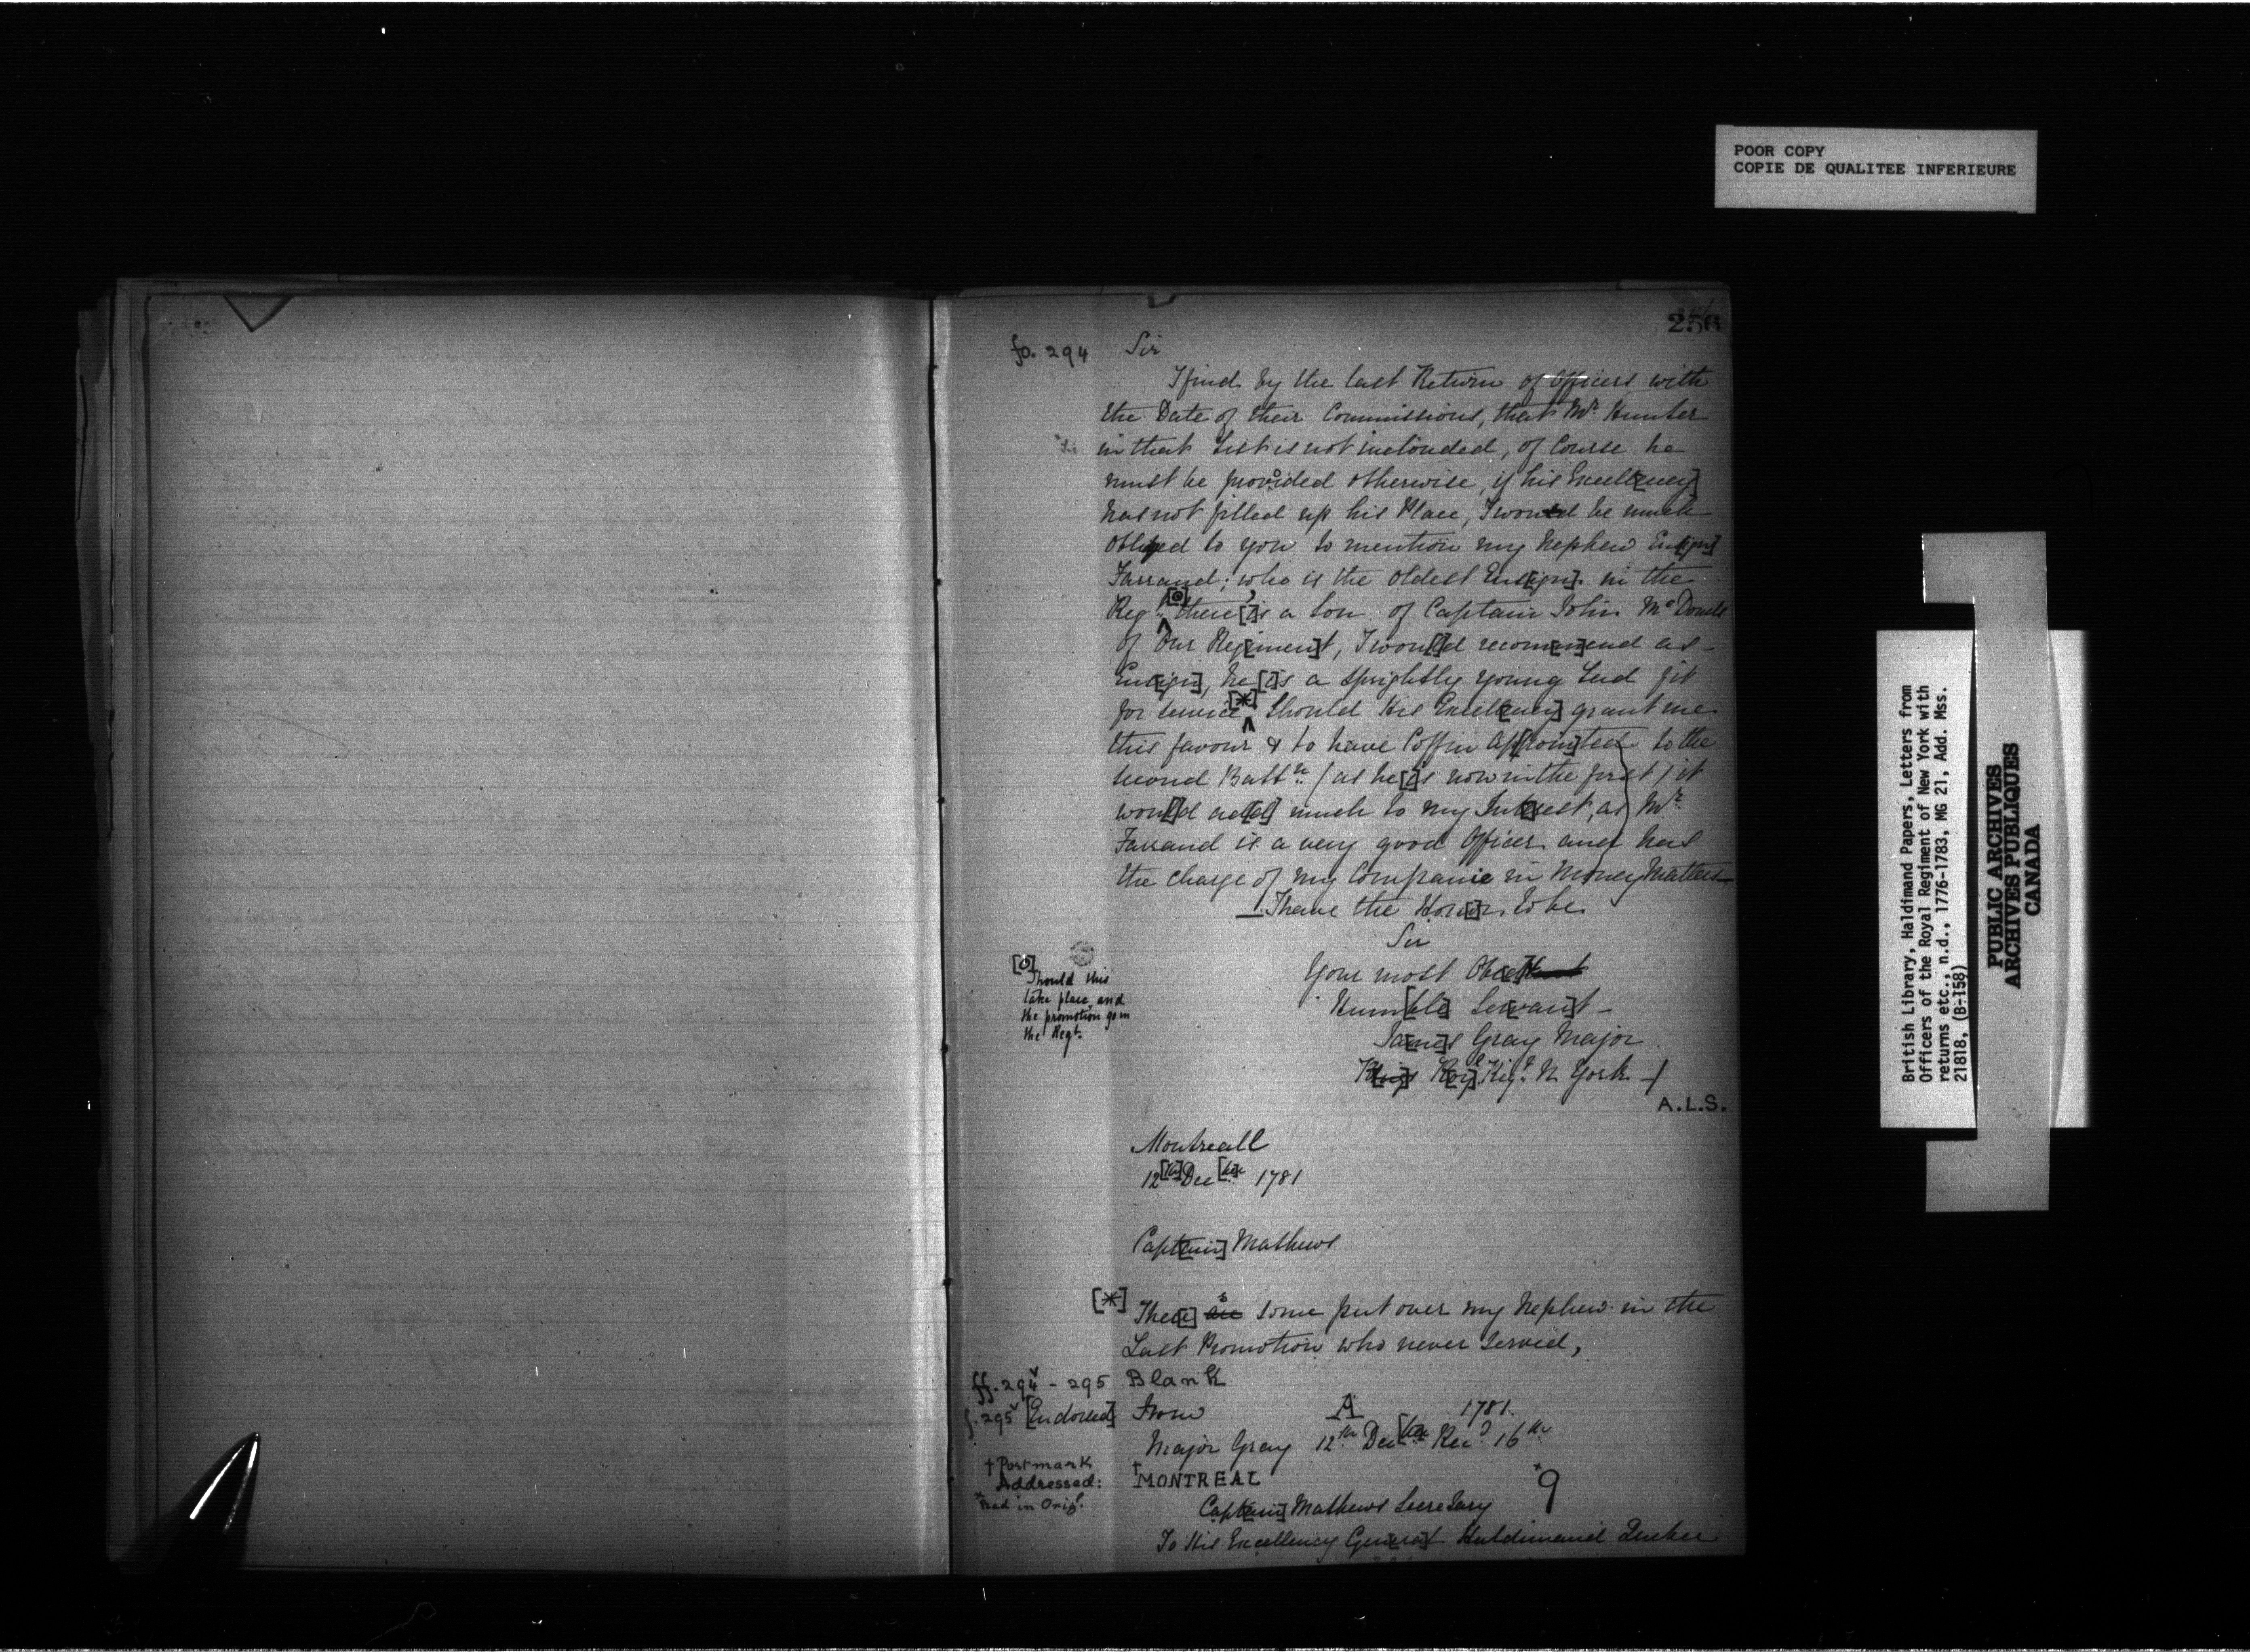 POOR COPY
COPIE DE QUALITEE INFERIEURE
256
fo. 294 Sir
I find by the last Return of Officers with
the Date of their Commissions, that Mr. Hunter
in that List is not inclouded, of Course he
must be provided otherwise, if his Excell[ency]
has not filled up his Place, I would be much
obliged to you to mention my Nephew Ens[ign]
Farrand; who is the oldest Ens[ign]. in the
Regt. [o] there [i]s a Son of Captain John McDonell
of Our Reg[imen]t, I wou[l]d recom[m]end as
Ens[ign], he [i]s a sprightly young Lad fit
for service [*] Should His Excell[ency] grant me
this favour & to have Coffin Ap[poin]ted to the
second Battn. (as he [i]s now in the first) it
wou[l]d ad[d] much to my Int[e]rest, as Mr.
Farrand is a very good Officer and has
the charge of my Companie in Money Matters
I have the Hono[u]r to be
Sir
Your most Obed[t]
Hum[ble] Ser[van]t -
Ja[me]s Gray Major
K[ing]s Ro[y]l Regt. N York
A.L.S.
[o] Should this
take place, and
the promotion go in
the Regt.
Montreall
12[th] Dec[ber] 1781
Capt[ain] Mathews
[*] The[re] is some put over my Nephew in the
Last Promotion who never Served,
ff. 294v - 295 Blank
f. 295v [Endorsed] From A 1781.
Major Gray 12th Dec[ber] Recd. 16th
† Postmark
Addressed: †MONTREAL
x Red in Origl. x9
Capt[ain] Mathews Secretary
To His Excellency Gen[era]l Haldimand Quebec
British Library, Haldimand Papers, Letters from
Officers of the Royal Regiment of New York with
returns etc., n.d., 1776-1783, MG 21, Add. Mss.
21818, (B-158)
PUBLIC ARCHIVES
ARCHIVES PUBLIQUES
CANADA